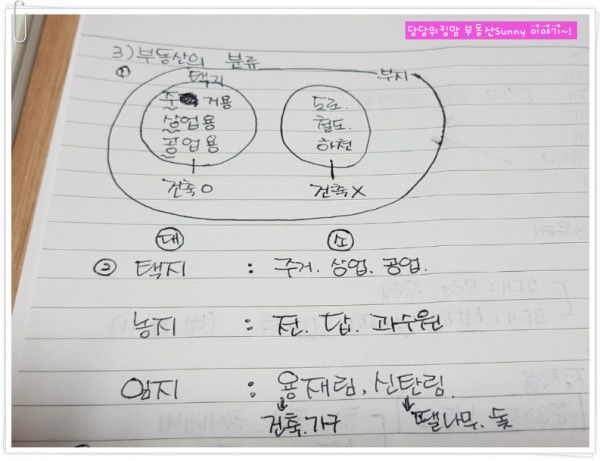 당당워킹맘 부동산Sunny 이야기~!
3) 부동산의 분류
① 택지 부지
주거용 도로.
상업용 철도.
공업용 하천
건축O 건축X
대 소
② 택지 : 주거. 상업. 공업.
농지 : 전. 답. 과수원
임지 : 용재림, 신탄림.
건축.가구 땔나무.